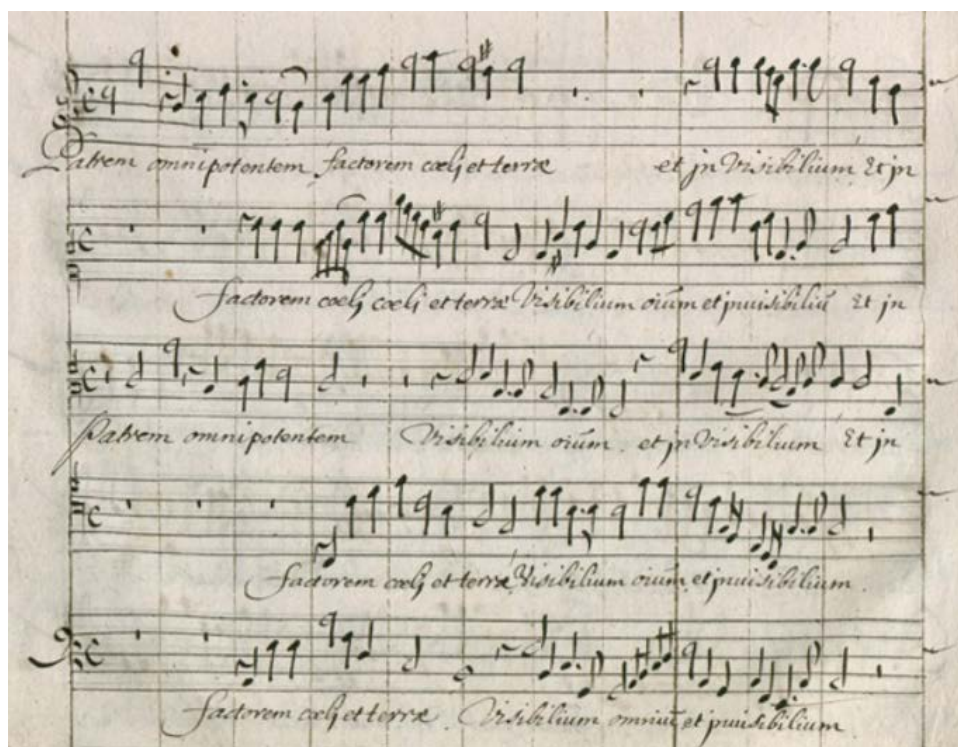 Patrem omnipotentem factorem cœlj et terræ et jn Visibilium Et jn
factorem cœlj cœli et terræ Visibilium oium et jnuisibiliū Et jn
Patrem omnipotentem Visibilium oium et jn Visibilium Et jn
factorem cœlj et terræ Visibilium oium et jnuisibilium
factorem cœlj et terræ Visibilium omniū et jnuisibilium